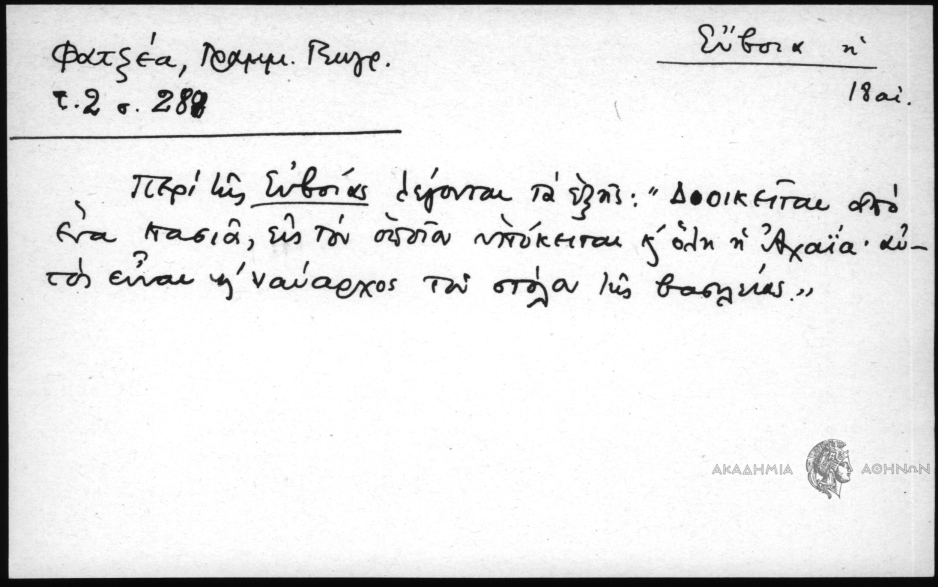 Εὔβοια ἡ
18 αἰ.
Φατζέα, Γραμμ. Γεωγρ.
τ. 2 σ. 288
Περί τῆς Εὐβοίας λέγονται τὰ ἑξῆς: "Διοικεῖται ἀπό
ἕνα πασιᾶ, εἰς τόν ὁποῖον ὑπόκειται κ' ὅλη ἡ Ἀχαΐα· αὐ-
τός εἶναι κ' ναύαρχος τοῦ στόλου τῆς βασιλείας."
ΑΚΑΔΗΜΙΑ ΑΘΗΝΩΝ